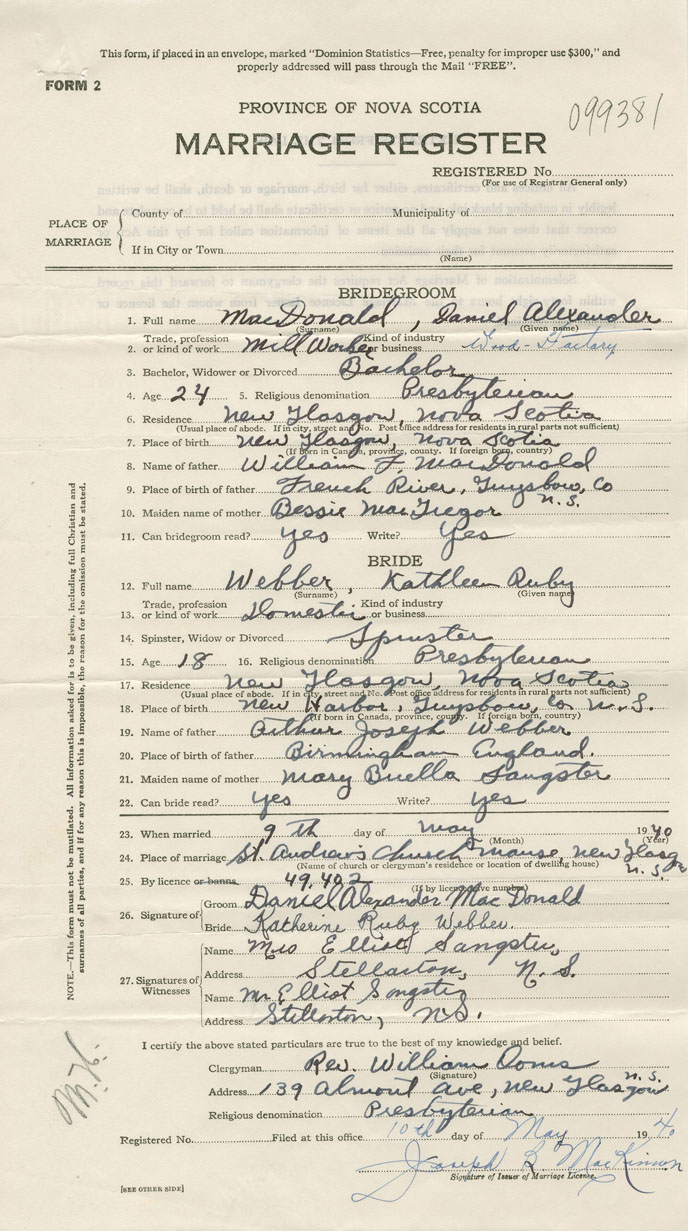 This form, if placed in an envelope, marked "Dominion Statistics—Free, penalty for improper use $300," and
properly addressed will pass through the Mail "FREE".
FORM 2
PROVINCE OF NOVA SCOTIA
099381
MARRIAGE REGISTER
REGISTERED No.
(For use of Registrar General only)
PLACE OF MARRIAGE
County of Municipality of
If in City or Town
(Name)
BRIDEGROOM
1. Full name MacDonald, Daniel Alexander
(Surname) (Given name)
2. Trade, profession or kind of work Mill Worker Kind of industry or business Wood-Factory
3. Bachelor, Widower or Divorced Bachelor
4. Age 24 5. Religious denomination Presbyterian
6. Residence New Glasgow, Nova Scotia
(Usual place of abode. If in city, street and No. Post office address for residents in rural parts not sufficient)
7. Place of birth New Glasgow, Nova Scotia
(If born in Canada, province, county. If foreign born, country)
8. Name of father William F. MacDonald
9. Place of birth of father French River, Guysbow, Co
N.S.
10. Maiden name of mother Bessie MacGregor
11. Can bridegroom read? yes Write? Yes
BRIDE
12. Full name Webber, Kathleen Ruby
(Surname) (Given name)
13. Trade, profession or kind of work Domestic Kind of industry or business
14. Spinster, Widow or Divorced Spinster
15. Age 18 16. Religious denomination Presbyterian
17. Residence New Glasgow, Nova Scotia
(Usual place of abode. If in city, street and No. Post office address for residents in rural parts not sufficient)
18. Place of birth New Harbor, Guysbow, Co. N.S.
(If born in Canada, province, county. If foreign born, country)
19. Name of father Arthur Joseph Webber
20. Place of birth of father Birmingham England.
21. Maiden name of mother Mary Buella Sangster
22. Can bride read? Yes Write? yes
23. When married 9th day of May 1940
(Month) (Year)
24. Place of marriage St. Andrew's Church Manse, New Glasg
(Name of church or clergyman's residence or location of dwelling house)
N.S.
25. By licence or banns 49,402
(If by licence give number)
26. Signature of
Groom Daniel Alexander MacDonald
Bride Katherine Ruby Webber.
27. Signatures of Witnesses
Name Mrs Elliot Sangster,
Address Stellarton, N.S.
Name Mr Elliot Songster
Address Stellarton, N.S.
I certify the above stated particulars are true to the best of my knowledge and belief.
Clergyman Rev. William Ooms
(Signature)
N.S.
Address 139 Almont Ave, New Glasgow
Religious denomination Presbyterian
Registered No. Filed at this office 10th day of May 1940
Joseph R MacKinnon
Signature of Issuer of Marriage License.
[SEE OTHER SIDE]
NOTE.—This form must not be mutilated. All information asked for is to be given, including full Christian and
surnames of all parties, and if for any reason this is impossible, the reason for the omission must be stated.
M.K.